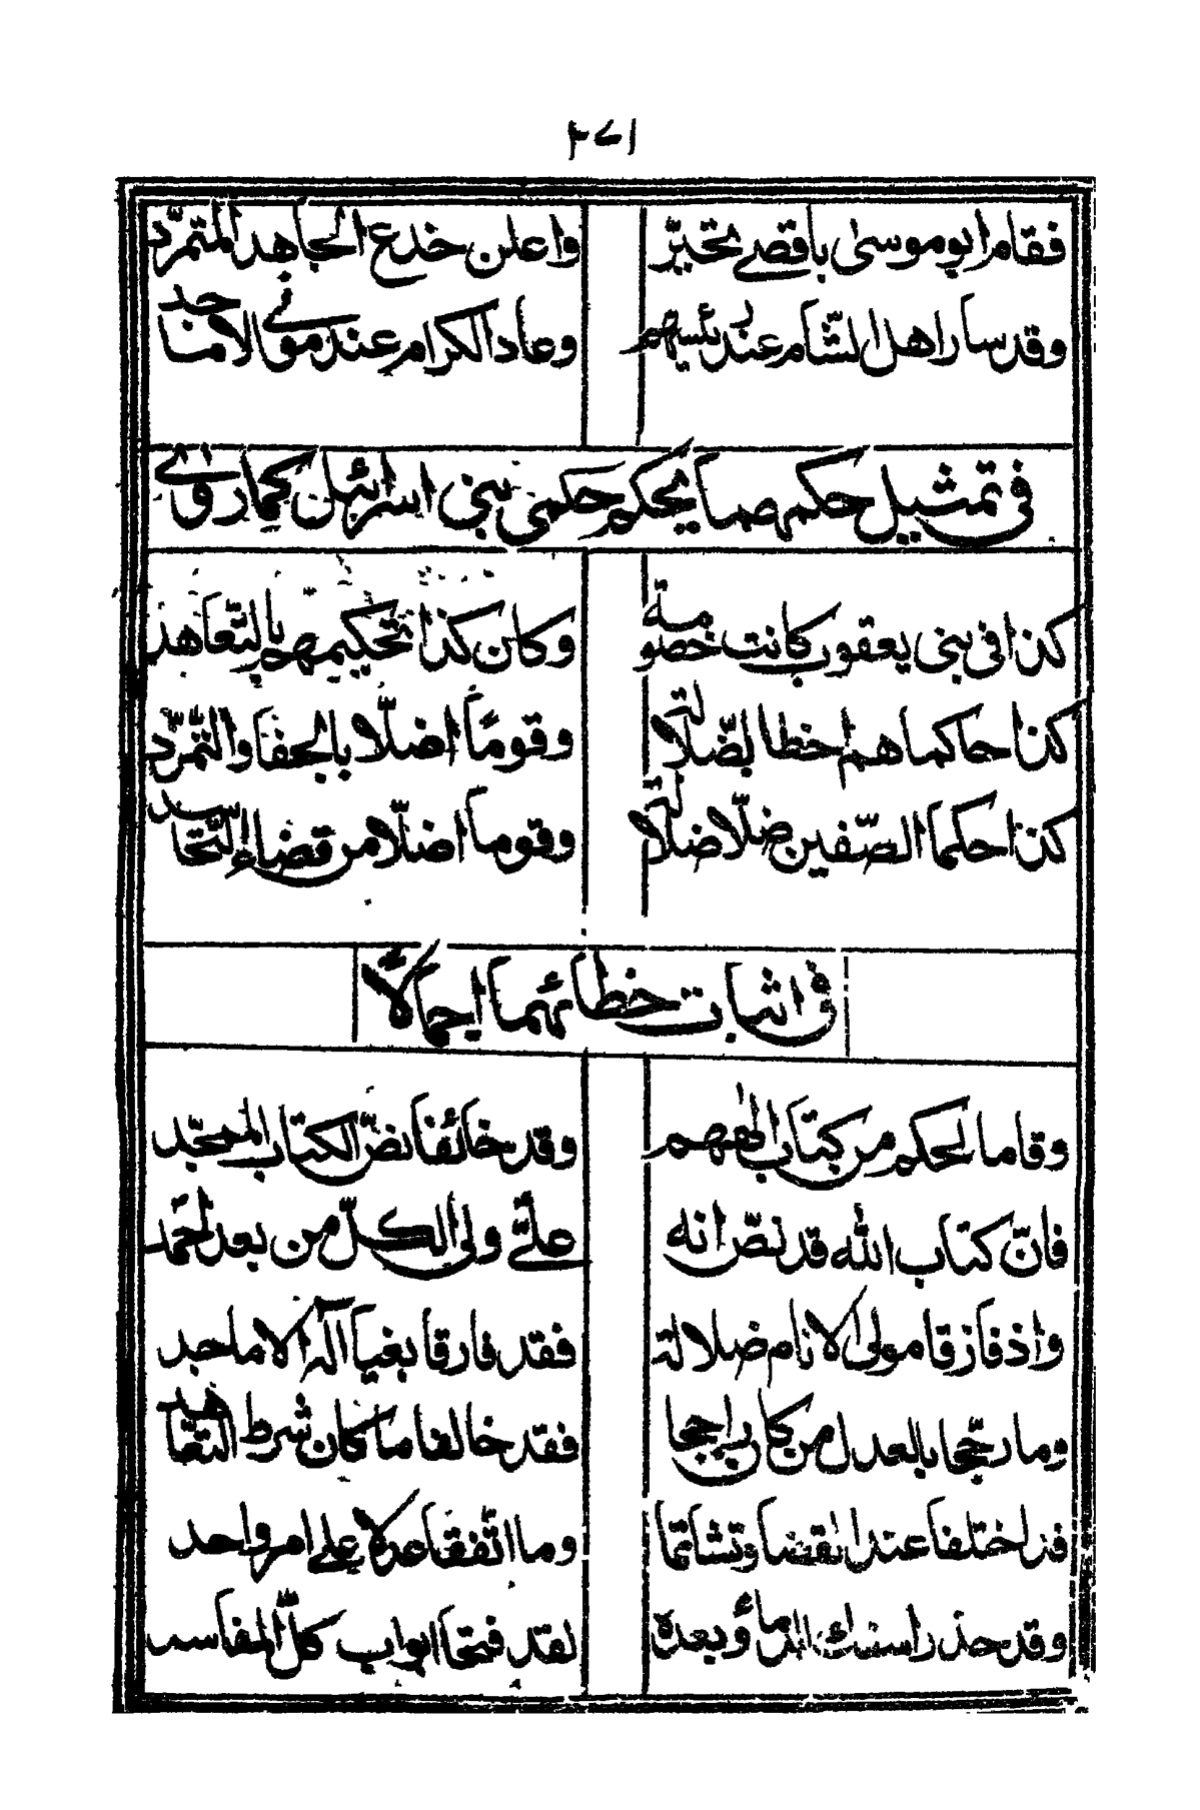 ٢٧١
فقام ابو موسىٰ باقصے تحيّر واعلن خدع الجاهد المتمرّد
وقد سار اهل الشام عند رئيسهم وعاد الكرام عند مولى الاماجد
فى تمثيل حكمهما بحكم حكمى بنى اسرائيل كما روى
كذا فى بنى يعقوب كانت خصومة وكان كذا تحكيمهم بالتّعاهد
كذا حاكما هم اخطا لضلالة وقوماً اضلّا بالجفا والتّمرّد
كذا حكما الصّفين ضلّا ضلالة وقوما اضلّا من قضاء التّحاسد
فى اثبات خطائهما اجمالًا
وقاما لحكم من كتاب الٰههم وقد خالفا نصّ الكتاب الممجّد
فانّ كتاب الله قد نصّ انه علىّ ولى الكلّ من بعد احمد
واذ فارقا مولى الانام ضلالة فقد فارقا بغيا اله الاماجد
وما رجّحا بالعدل من كان راجحا فقد خالفا ما كان شرط التعاهد
فذا اختلفا عند القضا وتشاتما وما اتّفقا عدلا على امر واحد
وقد حذرا سفك الدماء وبعده لقد فتحا ابواب كلّ المفاسد